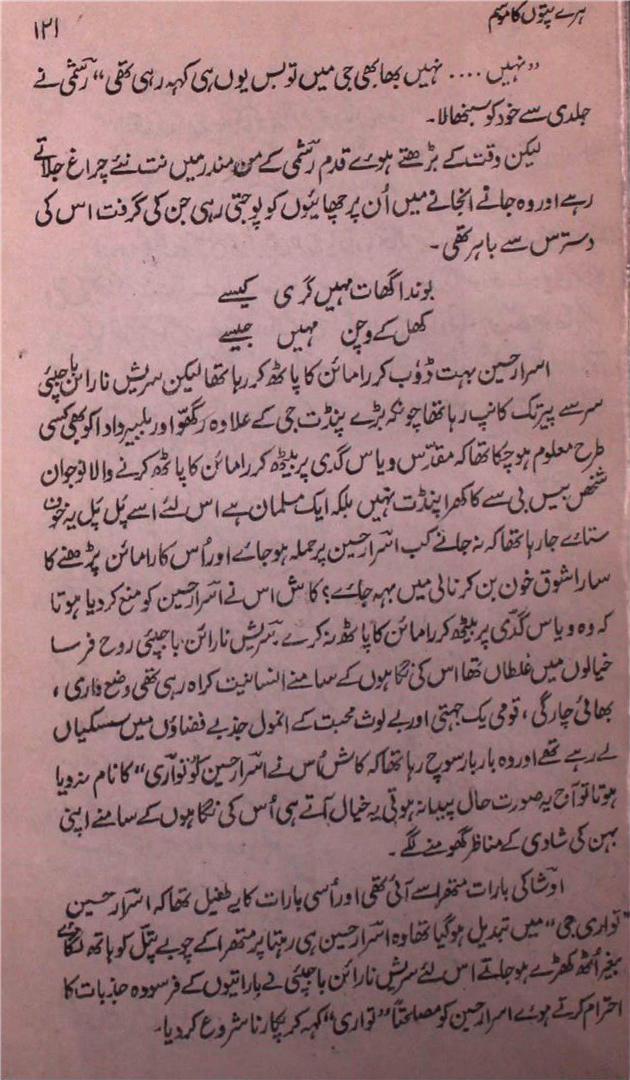 ہرے پتوں کا موسم
۱۲۱
”نہیں .... نہیں بھابھی جی میں تو بس یوں ہی کہہ رہی تھی“ رشمی نے
جلدی سے خود کو سنبھالا۔
لیکن وقت کے بڑھتے ہوئے قدم رشمی کے من مندر میں نت نئے چراغ جلاتے
رہے اور وہ جانے انجانے میں اُن پرچھائیوں کو پوجتی رہی جن کی گرفت اس کی
دسترس سے باہر تھی۔
بوندا گھات سہیں گری کیسے
کھل کے وچن سہیں جیسے
اسرار حسین بہت ڈوب کر رامائن کا پاٹھ کر رہا تھا لیکن سریش نارائن باجپئی
سر سے پیر تک کانپ رہا تھا چونکہ بڑے پنڈت جی کے علاوہ رگھو اور بلبیر دادا کو بھی کسی
طرح معلوم ہو چکا تھا کہ مقدّس ویاس گدی پر بیٹھ کر رامائن کا پاٹھ کرنے والا نوجوان
شخص بیس بی سے کا کھرا پنڈت نہیں بلکہ ایک مسلمان ہے اس لئے اسے پَل پَل یہ خوف
ستائے جا رہا تھا کہ نہ جانے کب اسرار حسین پر حملہ ہو جائے اور اُس کا رامائن پڑھنے کا
سارا شوق خون بن کر نالی میں بہہ جائے؟ کاش اس نے اسرار حسین کو منع کر دیا ہوتا
کہ وہ ویاس گدّی پر بیٹھ کر رامائن کا پاٹھ نہ کرے۔ سریش نارائن باجپئی روح فرسا
خیالوں میں غلطاں تھا اس کی نگاہوں کے سامنے انسانیت کراہ رہی تھی وضع داری ،
بھائی چارگی ، قومی یک جہتی اور بے لوث محبت کے انمول جذبے فضاؤں میں سسکیاں
لے رہے تھے اور وہ بار بار سوچ رہا تھا کہ کاش اُس نے اسرار حسین کو ”تواری“ کا نام نہ دیا
ہوتا تو آج یہ صورت حال پیدا نہ ہوتی یہ خیال آتے ہی اُس کی نگاہوں کے سامنے اپنی
بہن کی شادی کے مناظر گھومنے لگے۔
اوشا کی بارات متھرا سے آئی تھی اور اُسی بارات کا یہ طفیل تھا کہ اسرار حسین
”تواری جی“ میں تبدیل ہو گیا تھا وہ اسرار حسین ہی رہتا پر متھرا کے چوبے پتّل کو ہاتھ لگائے
بغیر اُٹھ کھڑے ہو جاتے اس لئے سریش نارائن باجپئی نے باراتیوں کے فرسودہ جذبات کا
احترام کرتے ہوئے اسرار حسین کو مصلحتاً ”تواری“ کہہ کر پکارنا شروع کر دیا۔